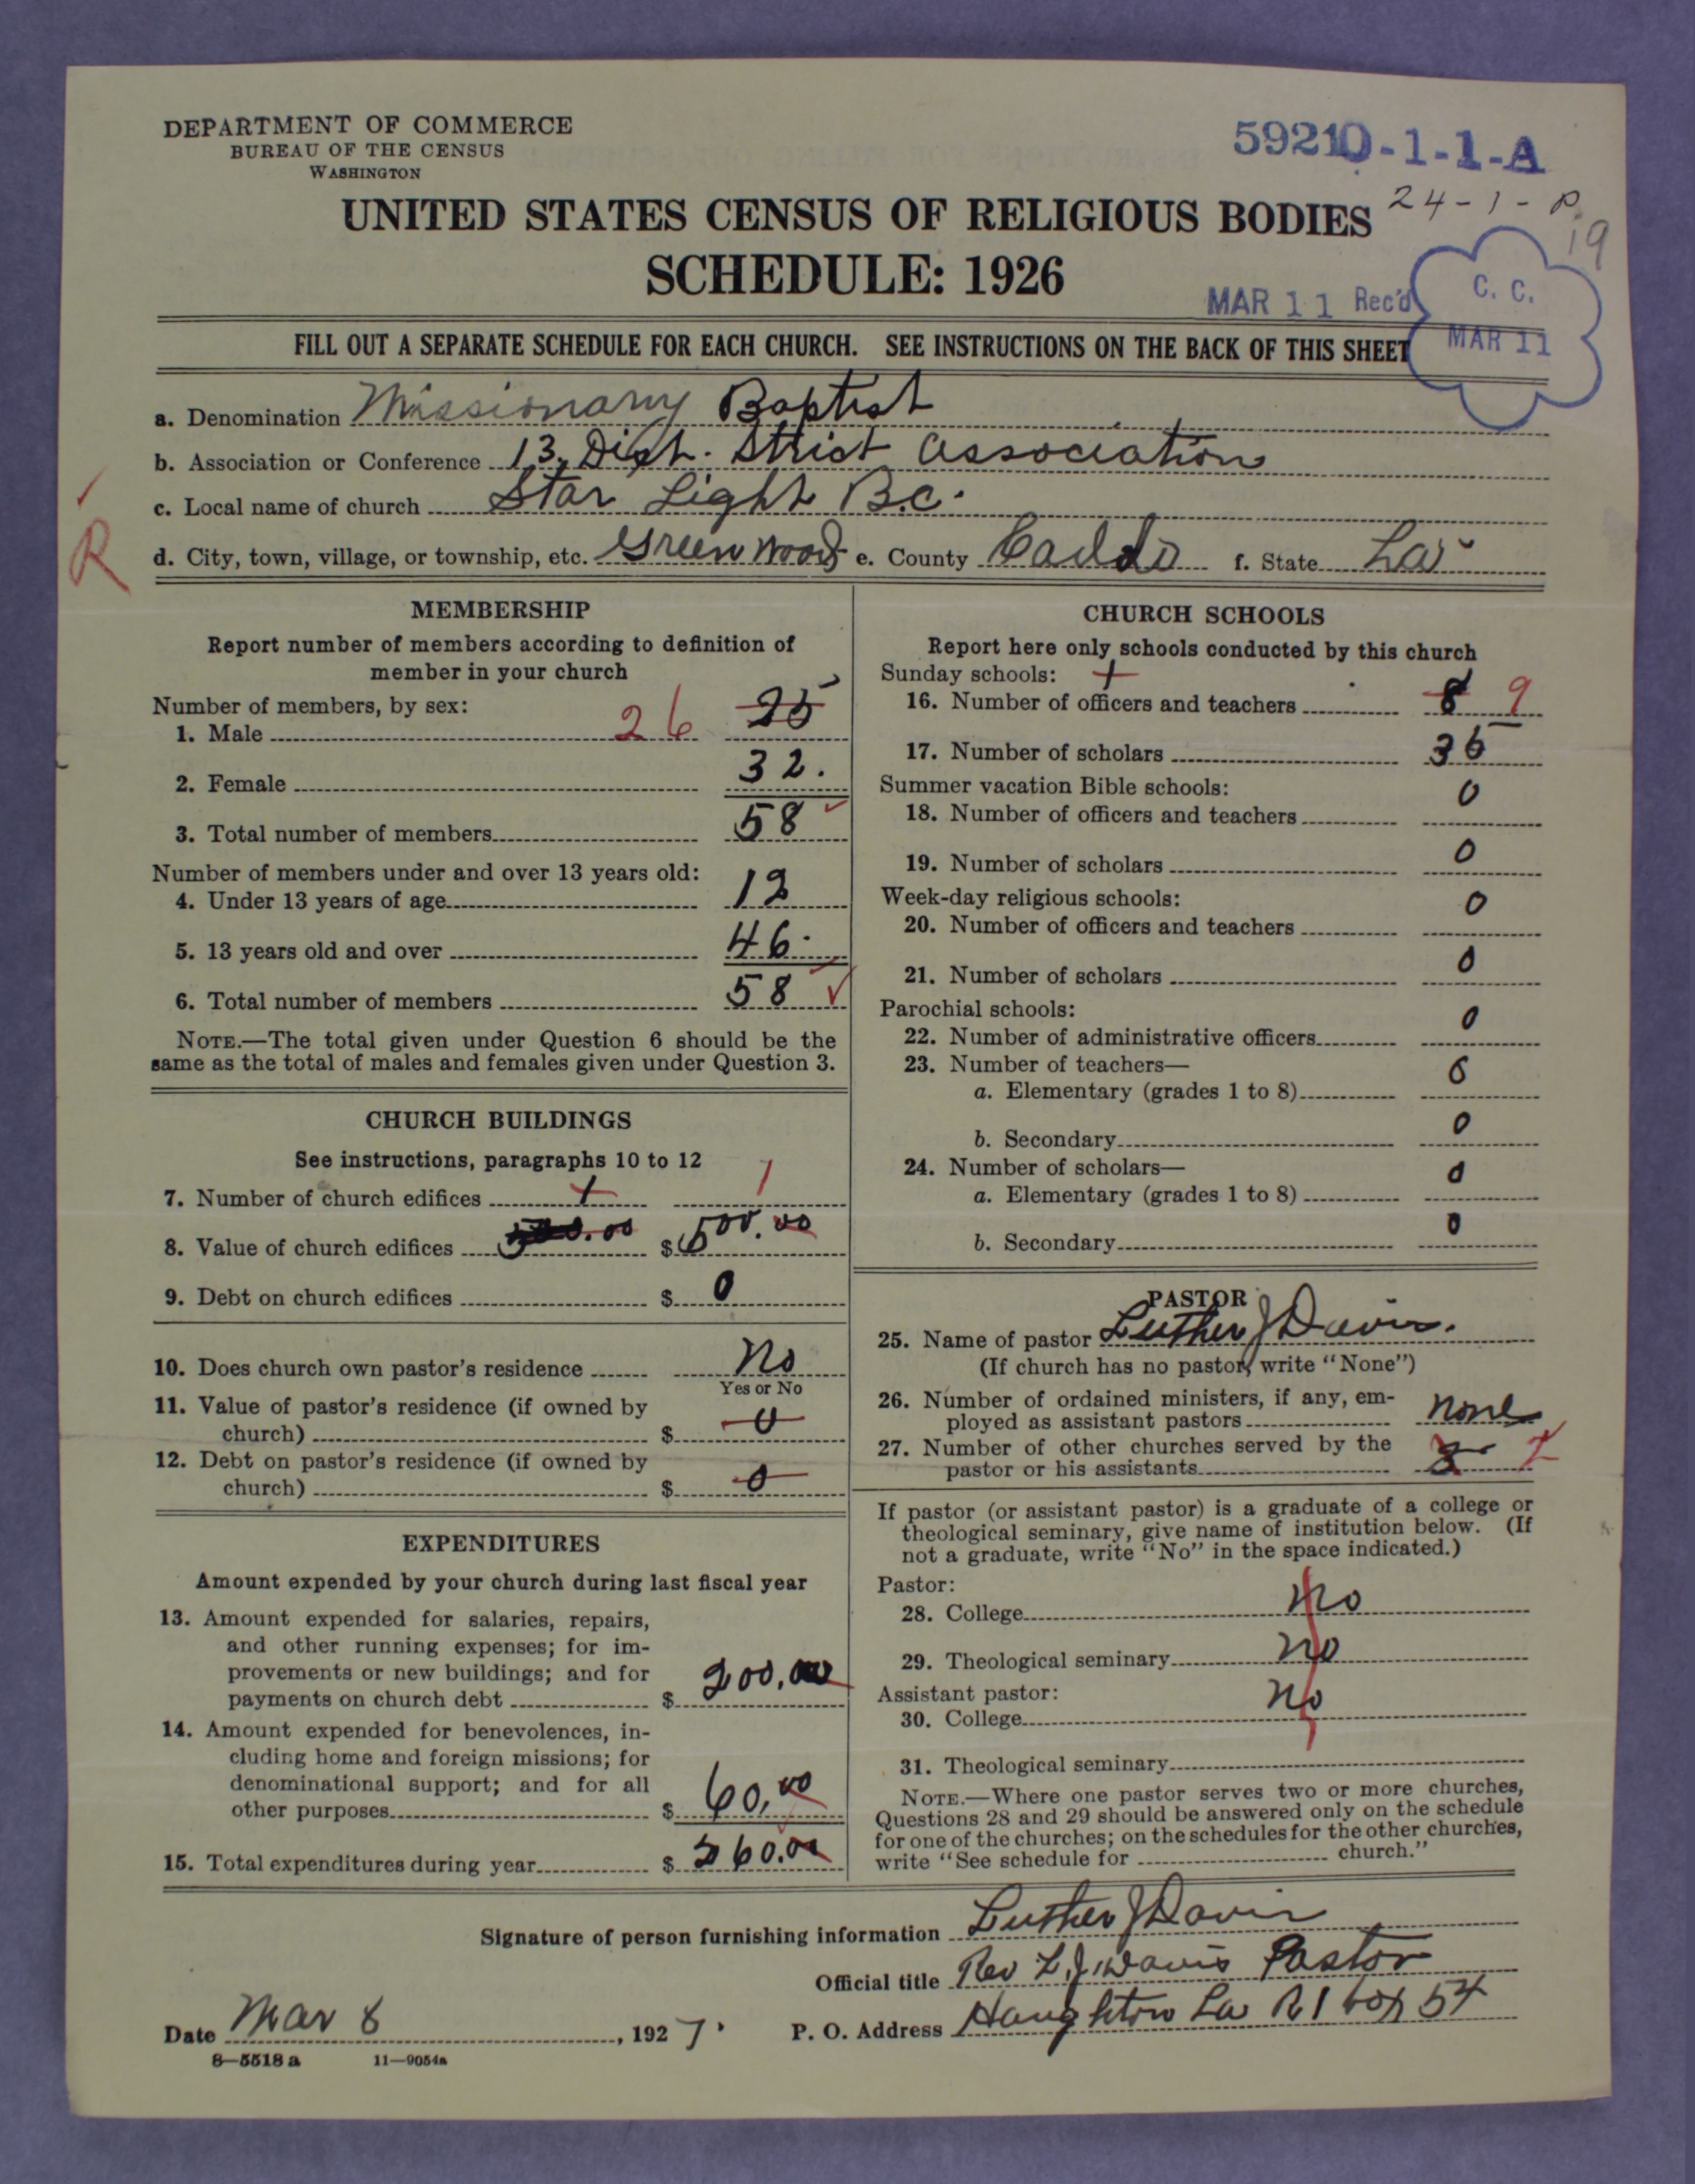 DEPARTMENT OF COMMERCE
BUREAU OF THE CENSUS
WASHINGTON
59210-1-1-A
24-1-P
19
UNITED STATES CENSUS OF RELIGIOUS BODIES
SCHEDULE: 1926
MAR 11 Rec'd
C. C.
MAR 11
FILL OUT A SEPARATE SCHEDULE FOR EACH CHURCH. SEE INSTRUCTIONS ON THE BACK OF THIS SHEET
a. Denomination Missionary Baptist
b. Association or Conference 13, Dist. Strict Association
c. Local name of church Star Light B.C.
R
d. City, town, village, or township, etc. Greenwood e. County Caddo f. State La
MEMBERSHIP
Report number of members according to definition of
member in your church
Number of members, by sex:
1. Male 26 25
2. Female 32.
3. Total number of members 58
Number of members under and over 13 years old:
4. Under 13 years of age 12
5. 13 years old and over 46.
6. Total number of members 58
NOTE.—The total given under Question 6 should be the
same as the total of males and females given under Question 3.
CHURCH BUILDINGS
See instructions, paragraphs 10 to 12
7. Number of church edifices 1 1
8. Value of church edifices 500.00 $ 500.00
9. Debt on church edifices $ 0
10. Does church own pastor's residence No
Yes or No
11. Value of pastor's residence (if owned by
church) $ 0
12. Debt on pastor's residence (if owned by
church) $ 0
EXPENDITURES
Amount expended by your church during last fiscal year
13. Amount expended for salaries, repairs,
and other running expenses; for im-
provements or new buildings; and for
payments on church debt $ 200.00
14. Amount expended for benevolences, in-
cluding home and foreign missions; for
denominational support; and for all
other purposes $ 60.00
15. Total expenditures during year $ 260.00
CHURCH SCHOOLS
Report here only schools conducted by this church
Sunday schools: 1
16. Number of officers and teachers 8 9
17. Number of scholars 36
Summer vacation Bible schools:
18. Number of officers and teachers 0
19. Number of scholars 0
Week-day religious schools:
20. Number of officers and teachers 0
21. Number of scholars 0
Parochial schools:
22. Number of administrative officers 0
23. Number of teachers—
a. Elementary (grades 1 to 8) 0
b. Secondary 0
24. Number of scholars—
a. Elementary (grades 1 to 8) 0
b. Secondary 0
PASTOR
25. Name of pastor Luther J Davis.
(If church has no pastor, write "None")
26. Number of ordained ministers, if any, em-
ployed as assistant pastors none
27. Number of other churches served by the
pastor or his assistants 3 2
If pastor (or assistant pastor) is a graduate of a college or
theological seminary, give name of institution below. (If
not a graduate, write "No" in the space indicated.)
Pastor:
28. College No
29. Theological seminary No
Assistant pastor:
30. College No
31. Theological seminary
NOTE.—Where one pastor serves two or more churches,
Questions 28 and 29 should be answered only on the schedule
for one of the churches; on the schedules for the other churches,
write "See schedule for church."
Signature of person furnishing information Luther J Davis
Official title Rev L. J. Davis Pastor
Date Mar 8, 1927. P. O. Address Haughton La R 1 box 54
8—5518 a 11—9054a